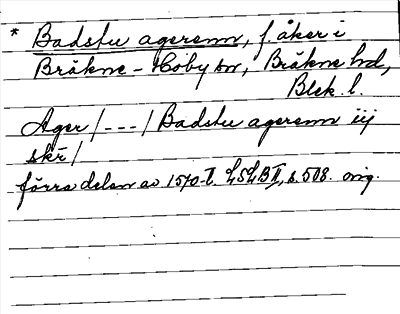 * Badstu agerenn, f. åker i
Bräkne-Hoby sn, Bräkne hd,
Blek. l.
Ager / --- / Badstu agerenn iij
skr̄ /
förra delen av 1570-t. LSLB II, s. 508. orig.